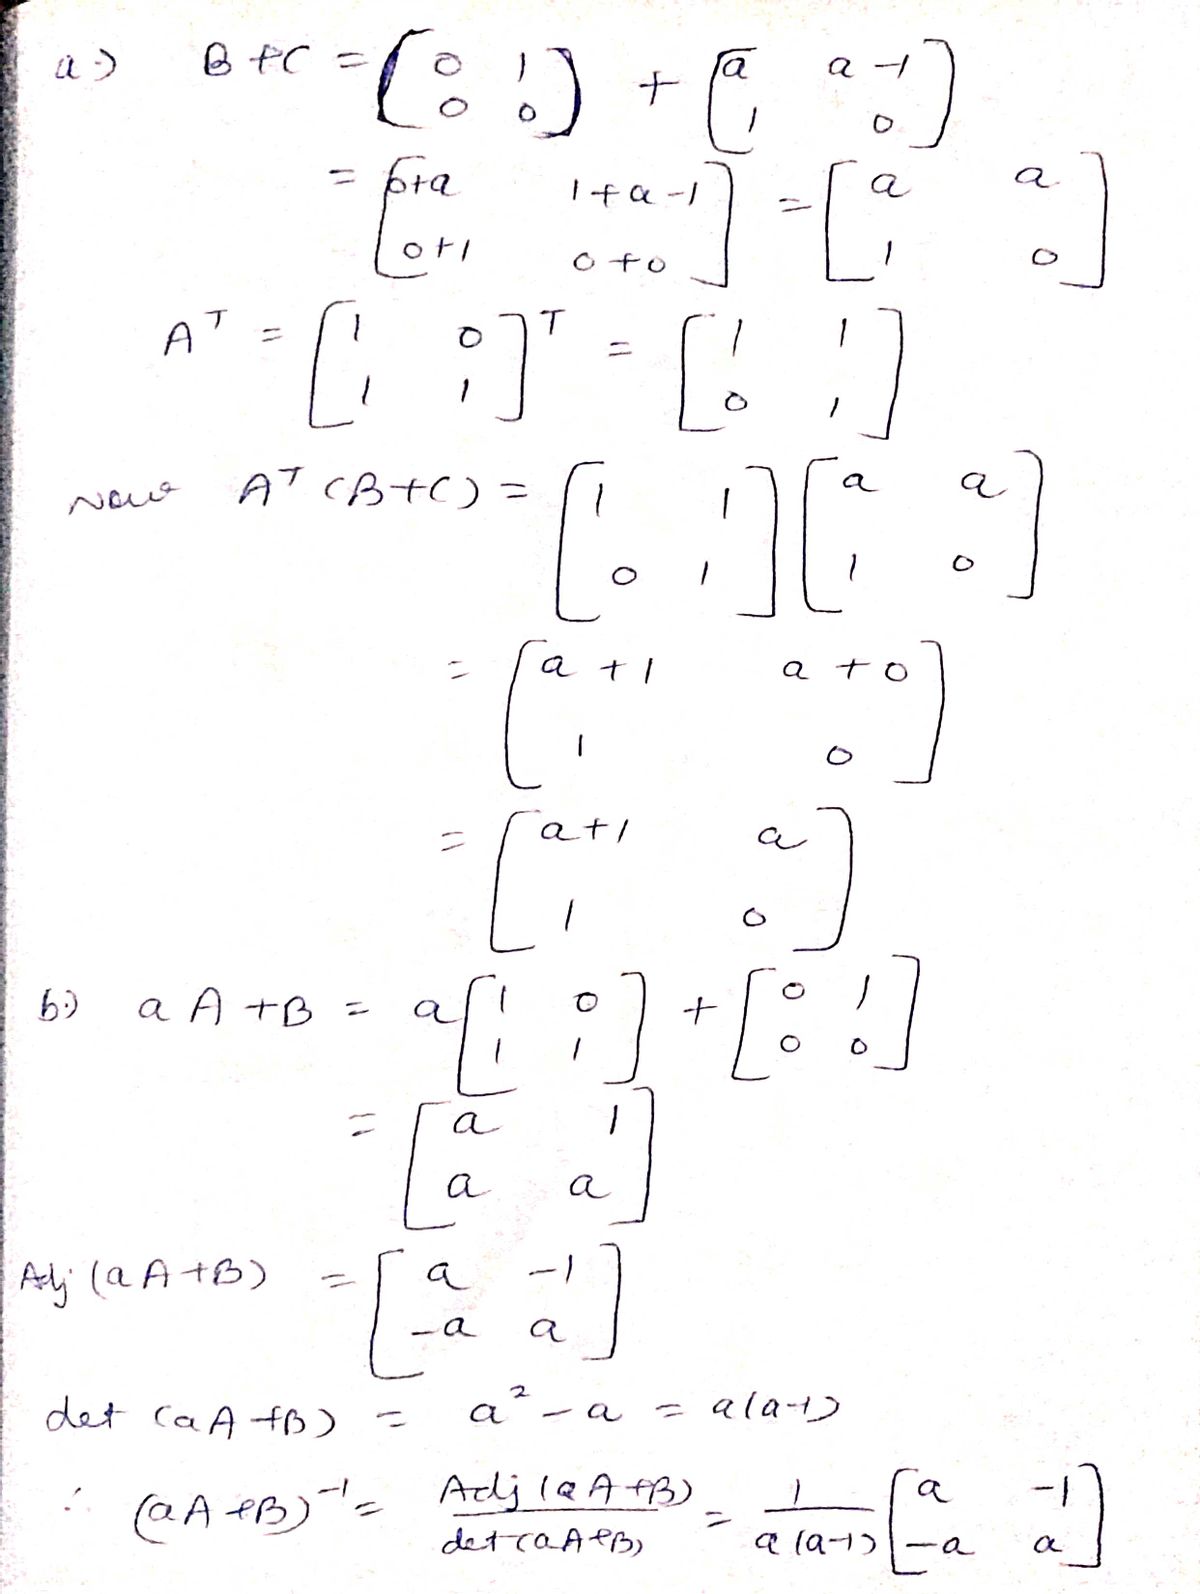 a.) B+C = (0 1 0 0) + [a a-1 1 0]
= [0+a 1+a-1 0+1 0+0] = [a a 1 0]
A^T = [1 0 1 1]^T = [1 1 0 1]
Now A^T (B+C) = [1 1 0 1] [a a 1 0]
= [a+1 a+0 1 0]
= [a+1 a 1 0]
b.) aA+B = a[1 0 1 1] + [0 1 0 0]
= [a 1 a a]
Adj (aA+B) = [a -1 -a a]
det (aA+B) = a² - a = a(a-1)
∴ (aA+B)^-1 = Adj (aA+B) / det (aA+B) = 1 / a(a-1) [a -1 -a a]